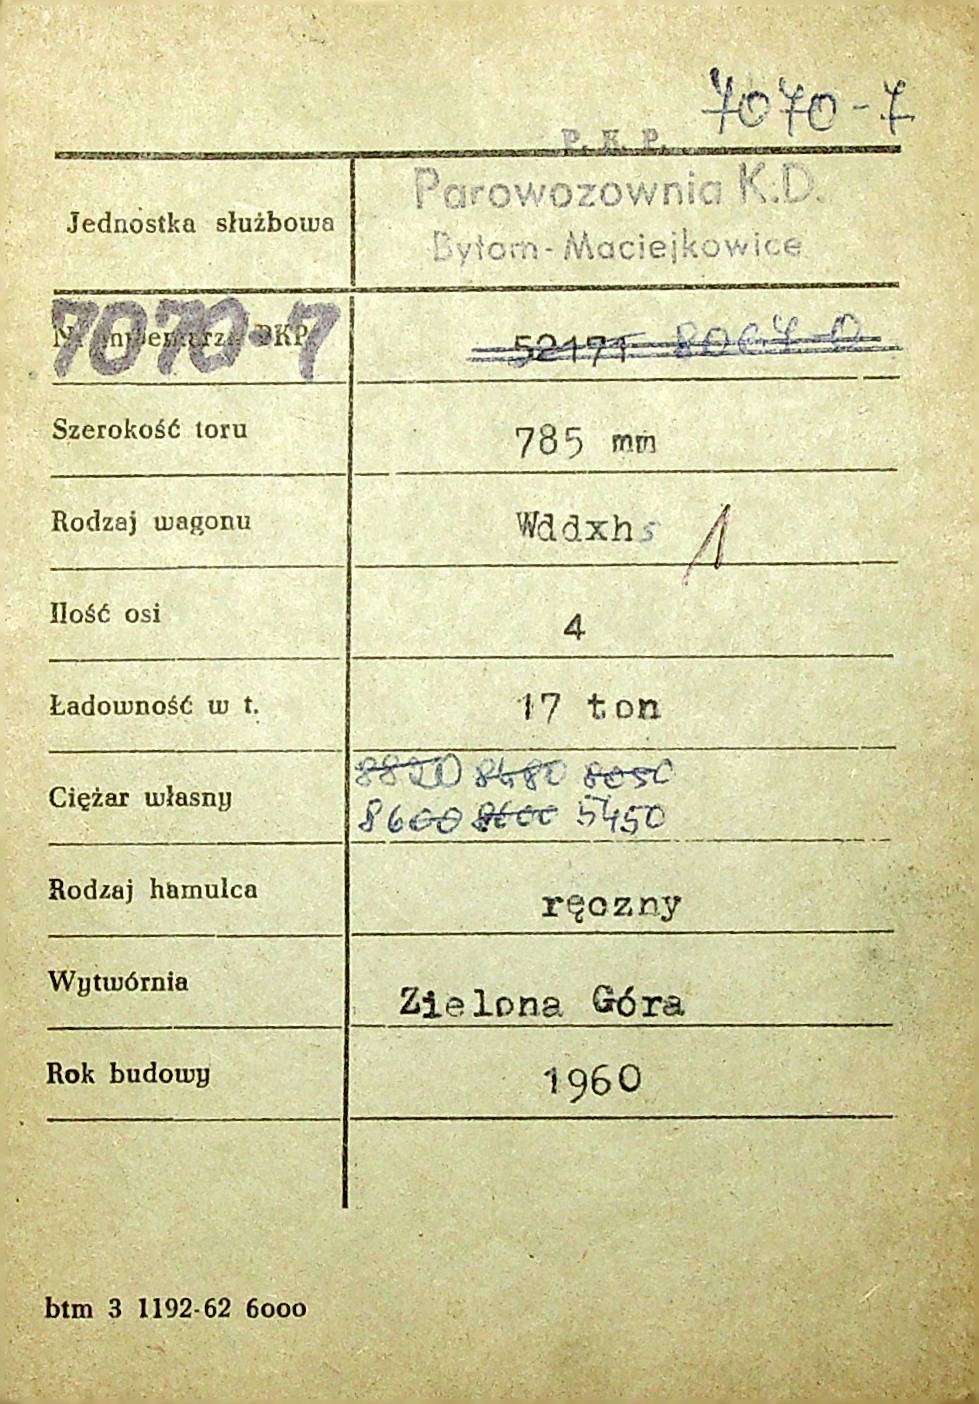 7070-7
P. K. P.
Parowozownia K.D.
Jednostka służbowa
Bytom-Maciejkowice
7070-7
Nr inwentarza PKP
52171 8067-0
Szerokość toru 785 mm
Rodzaj wagonu Wddxhs 1
Ilość osi 4
Ładowność w t. 17 ton
8820 8480 8050
Ciężar własny
8600 8600 5450
Rodzaj hamulca ręczny
Wytwórnia Zielona Góra
Rok budowy 1960
btm 3 1192-62 6ooo